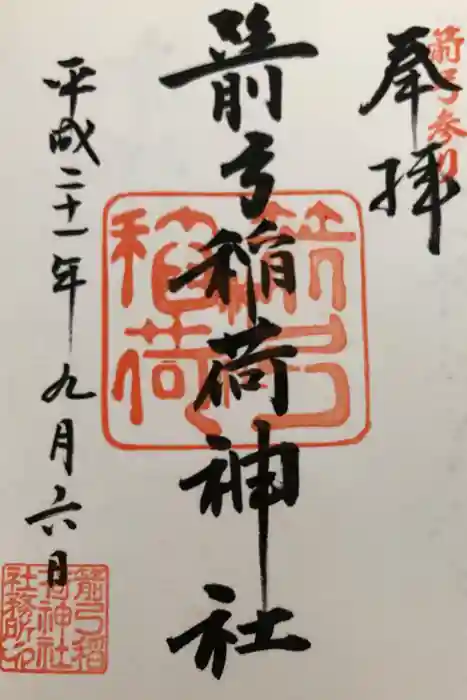 奉拝
箭弓参り
箭弓稲荷神社
箭弓稲荷
平成二十一年九月六日
箭弓稲荷神社社務所之印